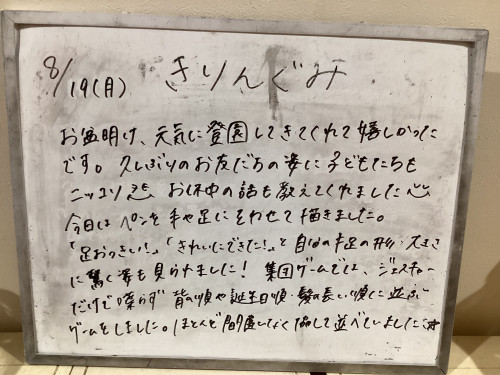 8/19(月) きりんぐみ
お盆明け、元気に登園してきてくれて嬉しかった
です。久しぶりのお友だちの姿に子どもたちも
ニッコリ お休中の話も教えてくれました
今日はペンを手や足にそわせて描きました。
「足おっきい!」「きれいにできた!」と自分の手足の形・大きさ
に驚く姿も見られました! 集団ゲームでは、ジェスチャー
だけで喋らず背の順や誕生日順・髪の長い順に並ぶ
ゲームをしました。ほとんど間違いなく協力して並べていました